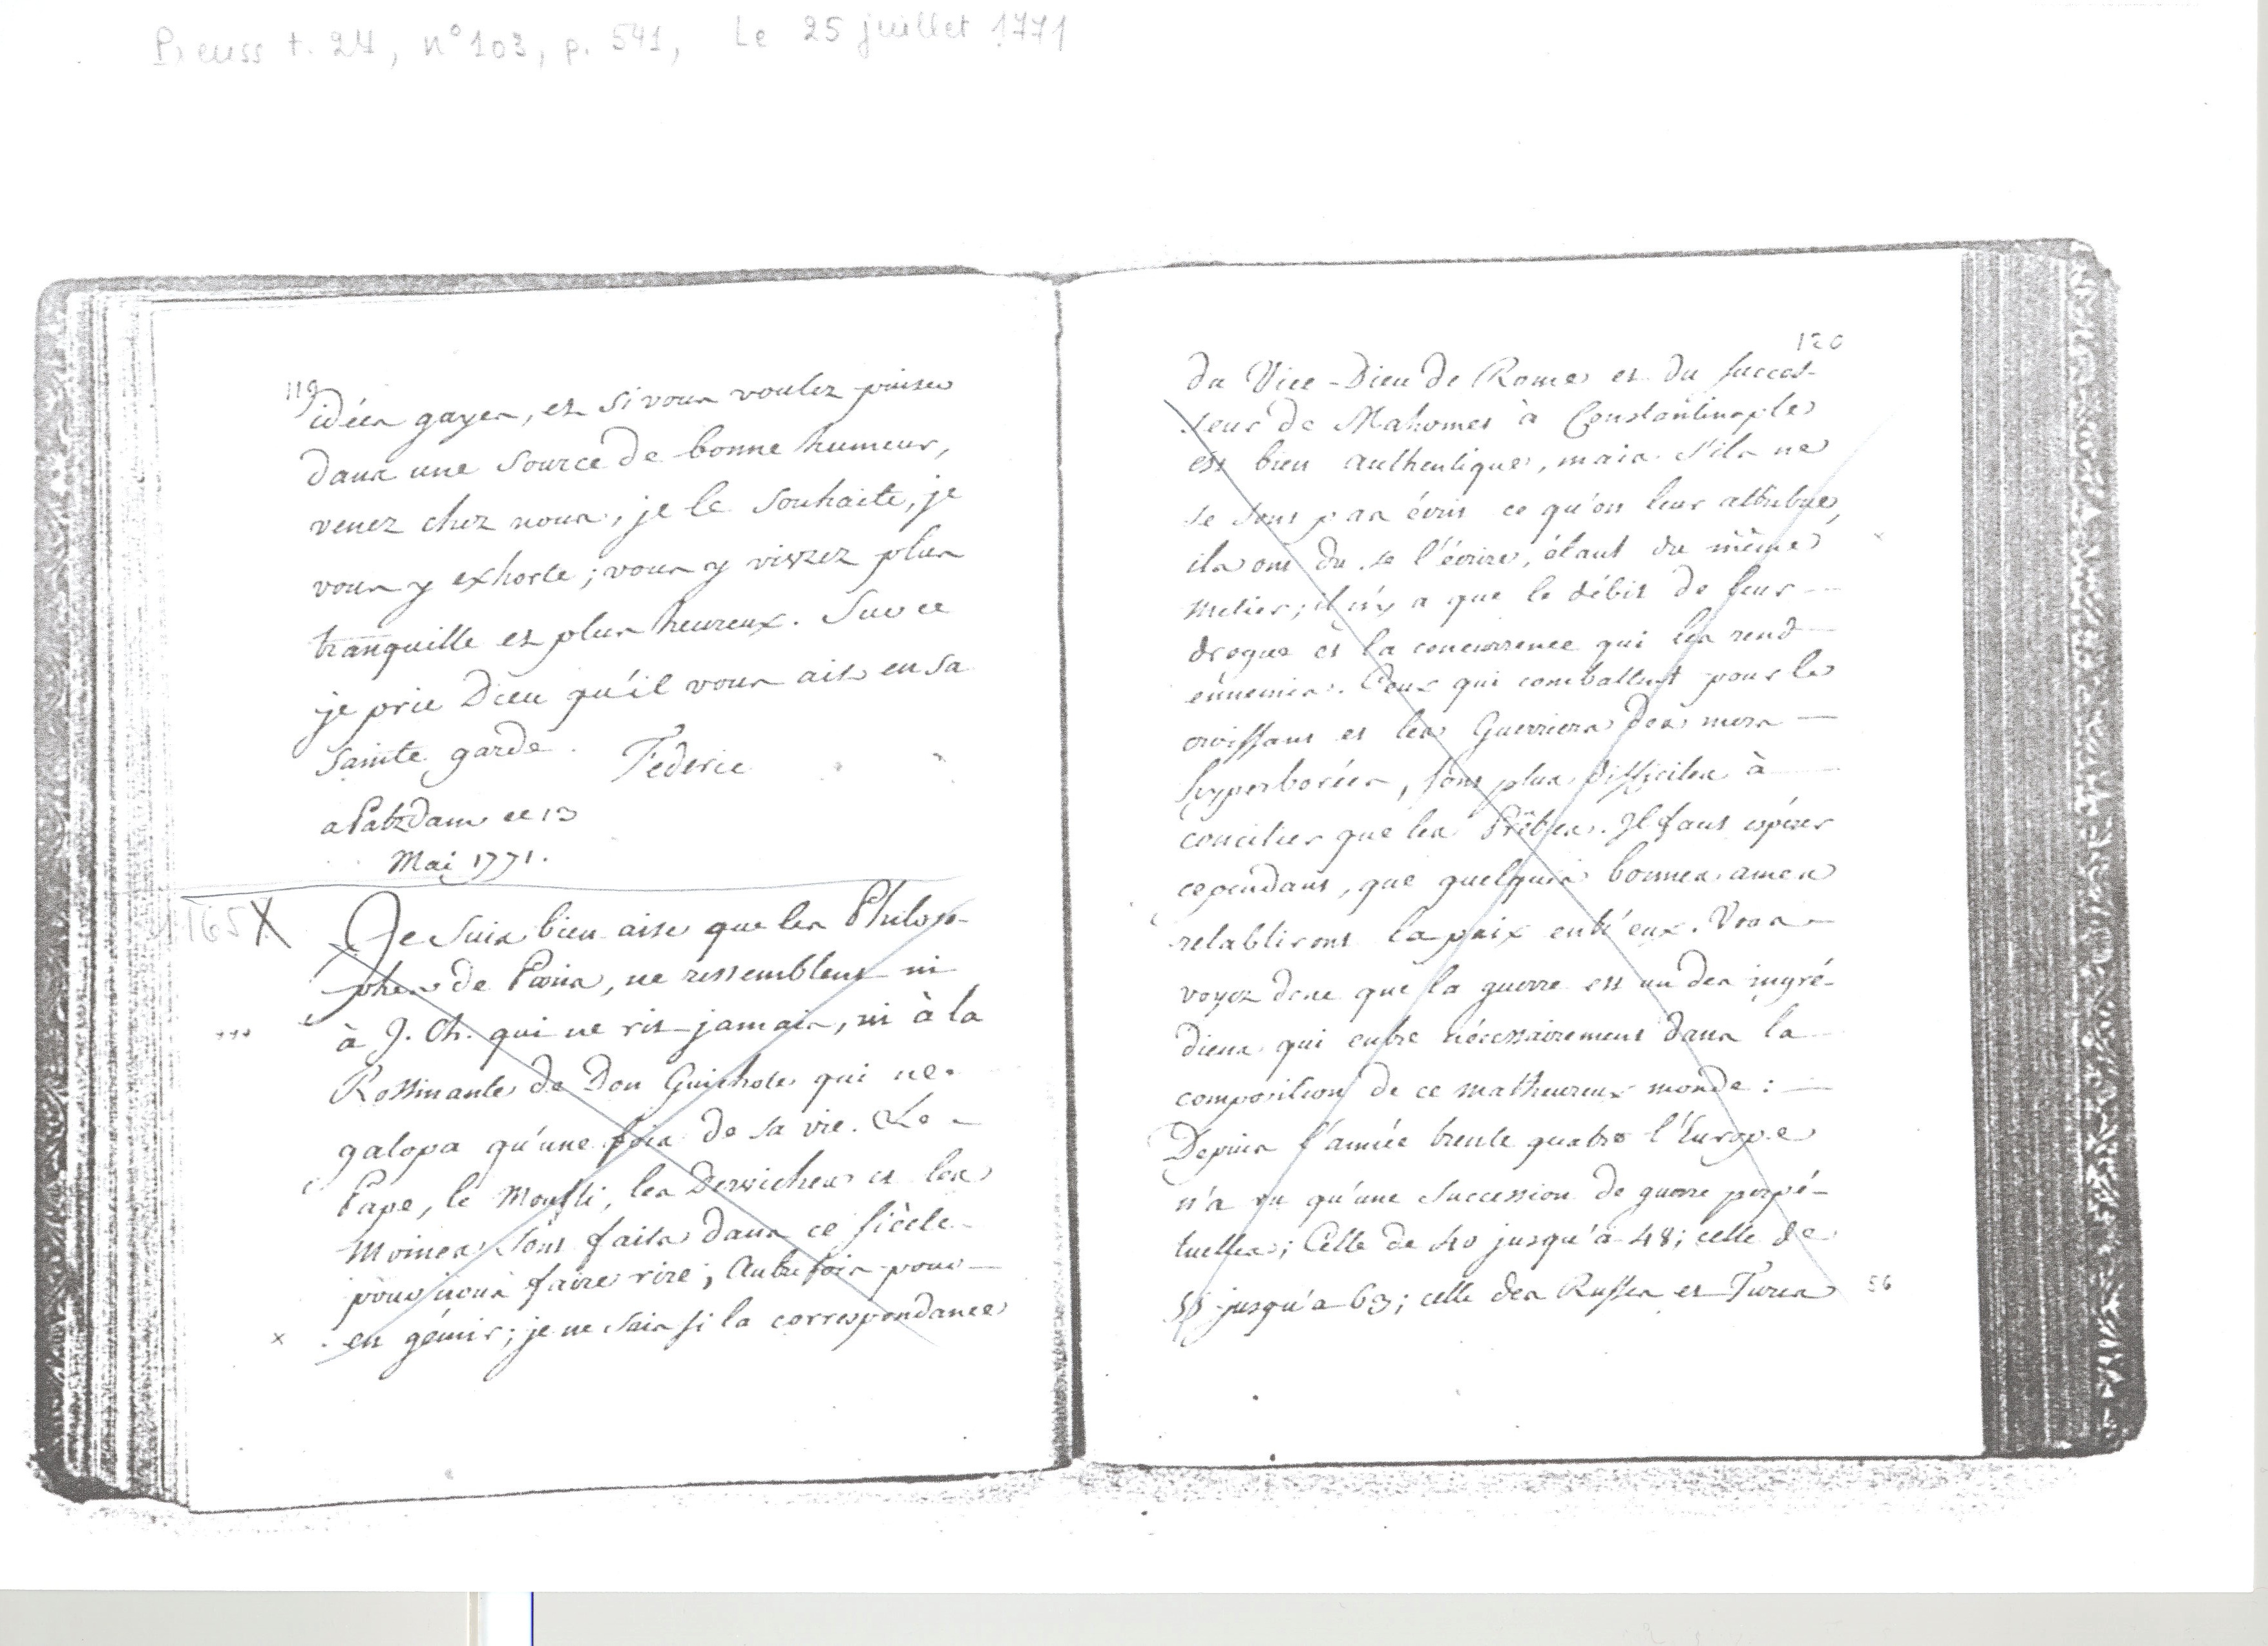 Preuss t. 24, n° 103, p. 541, Le 25 juillet 1771
119
idées gayes, et si vous voulez puiser
dans une source de bonne humeur,
venez chez nous, je le souhaite, je
vous y exhorte; vous y vivrez plus
tranquille et plus heureux. Sur ce
je prie Dieu qu'il vous ait en sa
sainte garde. Féderic
a Potzdam ce 13
Mai 1771.
165 X
Je suis bien aise que les Philoso-
phes de Paris, ne ressemblent ni
à J. Ch. qui ne rit jamais, ni à la
Rossinante de Don Guichote qui ne
galopa qu'une fois de sa vie. Le
Pape, le Moufti, les Derviches et les
Moines sont faits dans ce siècle
pour nous faire rire; Autrefois pour
x en gémir; je ne sais si la correspondance
120
du Vice-Dieu de Rome et du succes-
seur de Mahomet à Constantinople
est bien authentique, mais s'ils ne
se sont pas écrit ce qu'on leur attribue,
ils ont du se l'écrire, étant du même
métier; il n'y a que le débit de leur
drogue et la concurrence qui les rend
ennemis. Ceux qui combattent pour le
croissant et les Guerriers des mers
hyperborées, sont plus difficiles à
concilier que les Prêtres. Il faut espérer
cependant, que quelques bonnes ames
retabliront la paix entr'eux. Vous
voyez donc que la guerre est un des ingré-
diens qui entre nécessairement dans la
composition de ce malheureux monde:
Depuis l'année trente quatre l'Europe
n'a vu qu'une succession de guerre perpé-
tuelles; Celle de 40 jusqu'à 48; celle de
jusqu'a 63; celle des Russes et Turcs 56